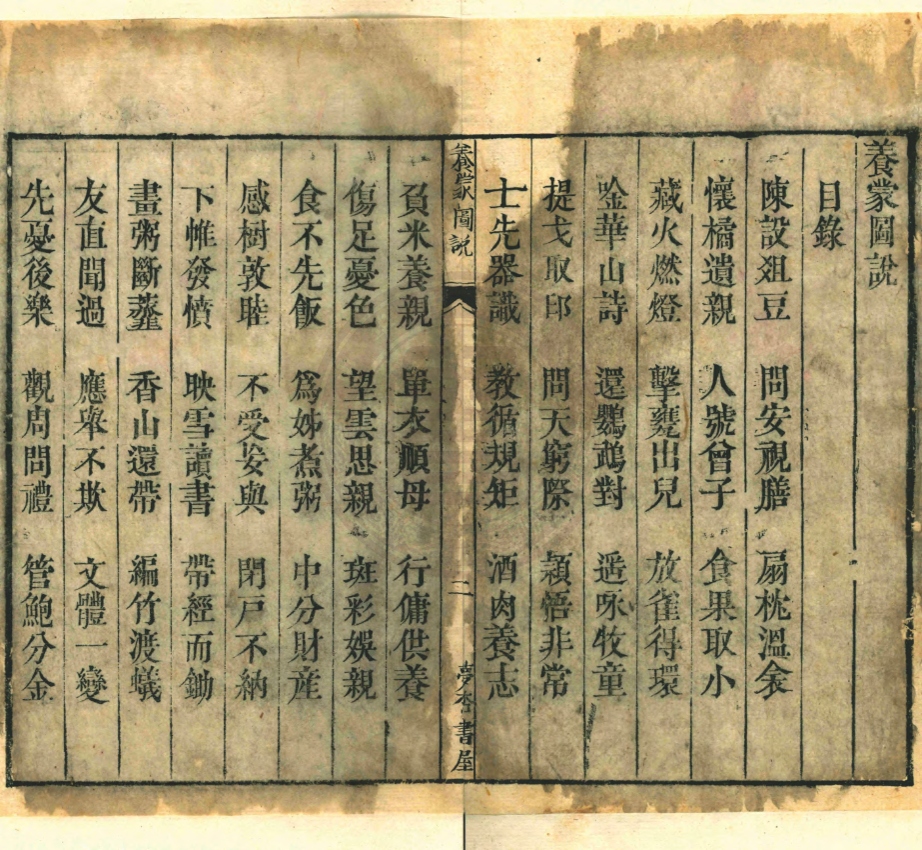 養蒙圖說
目錄
陳設俎豆 問安視膳 扇枕溫衾
懷橘遺親 人號曾子 食果取小
藏火燃燈 擊甕出兒 放雀得環
唫華山詩 還鸚鵡對 遥咏牧童
提戈取印 問天窮際 穎悟非常
士先器識 教循規矩 酒肉養志
養蒙圖說
二
夢杏書屋
負米養親 單衣順母 行傭供養
傷足憂色 望雲思親 斑彩娛親
食不先飯 為姊煮粥 中分財産
感樹敦睦 不受妄與 閉戸不納
下帷發憤 映雪讀書 帶經而鋤
畫粥斷虀 香山還帶 編竹渡蟻
友直聞過 應舉不欺 文體一變
先憂後樂 觀周問禮 管鮑分金